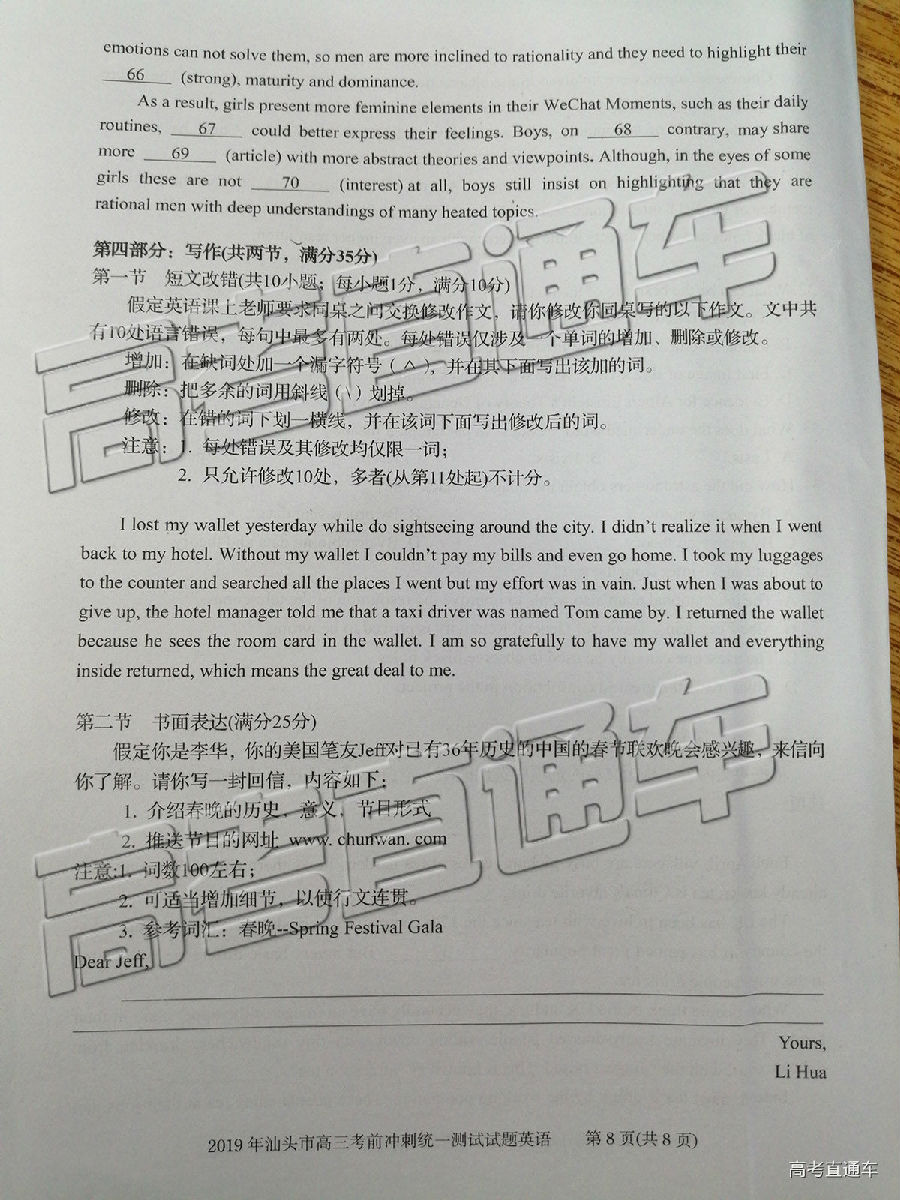 emotions can not solve them, so men are more inclined to rationality and they need to highlight their
66 (strong), maturity and dominance.
As a result, girls present more feminine elements in their WeChat Moments, such as their daily
routines, 67 could better express their feelings. Boys, on 68 contrary, may share
more 69 (article) with more abstract theories and viewpoints. Although, in the eyes of some
girls these are not 70 (interest) at all, boys still insist on highlighting that they are
rational men with deep understandings of many heated topics.
第四部分：写作(共两节，满分35分)
第一节 短文改错(共10小题；每小题1分，满分10分)
假定英语课上老师要求同桌之间交换修改作文，请你修改你同桌写的以下作文。文中共
有10处语言错误，每句中最多有两处。每处错误仅涉及一个单词的增加、删除或修改。
增加：在缺词处加一个漏字符号（∧），并在其下面写出该加的词。
删除：把多余的词用斜线（\）划掉。
修改：在错的词下划一横线，并在该词下面写出修改后的词。
注意：1. 每处错误及其修改均仅限一词；
2. 只允许修改10处，多者(从第11处起)不计分。
I lost my wallet yesterday while do sightseeing around the city. I didn't realize it when I went
back to my hotel. Without my wallet I couldn't pay my bills and even go home. I took my luggages
to the counter and searched all the places I went but my effort was in vain. Just when I was about to
give up, the hotel manager told me that a taxi driver was named Tom came by. I returned the wallet
because he sees the room card in the wallet. I am so gratefully to have my wallet and everything
inside returned, which means the great deal to me.
第二节 书面表达(满分25分)
假定你是李华，你的美国笔友Jeff对已有36年历史的中国的春节联欢晚会感兴趣，来信向
你了解。请你写一封回信，内容如下：
1. 介绍春晚的历史，意义，节目形式
2. 推送节目的网址 www.chunwan.com
注意:1. 词数100左右；
2. 可适当增加细节，以使行文连贯。
3. 参考词汇：春晚--Spring Festival Gala
Dear Jeff,
Yours,
Li Hua
2019 年汕头市高三考前冲刺统一测试试题英语 第 8 页(共 8 页)
高考直通车
高考直通车
高考直通车